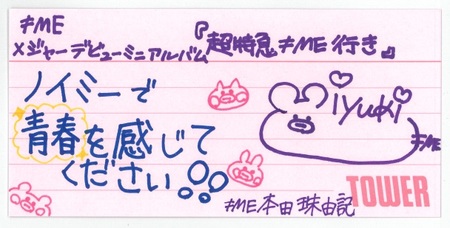 ≠ME
メジャーデビューミニアルバム『超特急≠ME行き』
ノイミーで
青春を感じて
ください!!
miyuki
≠ME
TOWER
≠ME 本田珠由記